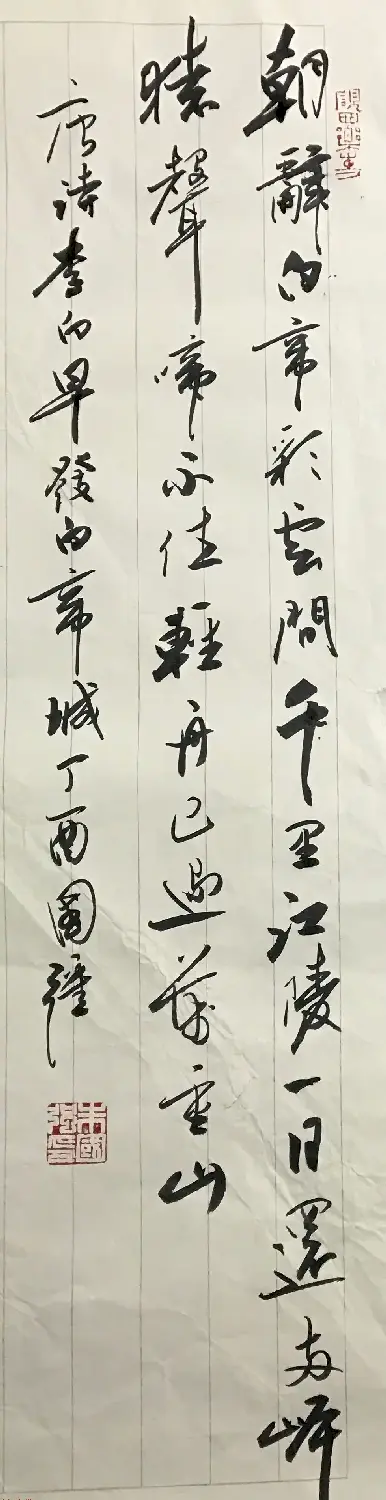 朝辭白帝彩雲間千里江陵一日還两岸
猿聲啼不住輕舟已過萬重山
唐詩李白早發白帝城丁酉國彊